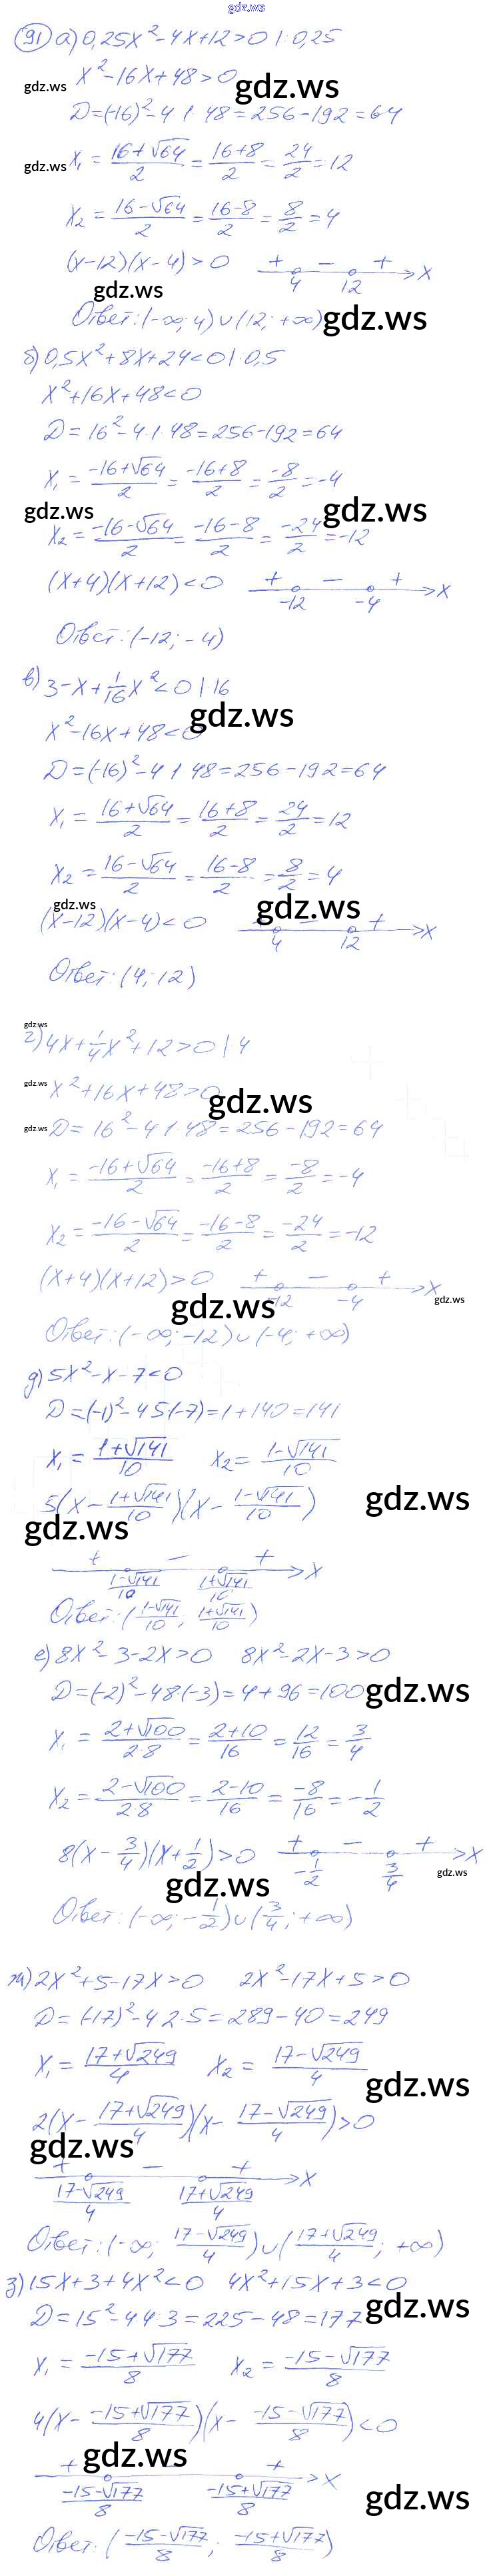 gdz.ws
91 а) 0,25x² - 4x + 12 > 0 | : 0,25
gdz.ws x² - 16x + 48 > 0 gdz.ws
D = (-16)² - 4·1·48 = 256 - 192 = 64
gdz.ws x₁ = (16+√64)/2 = (16+8)/2 = 24/2 = 12
x₂ = (16-√64)/2 = (16-8)/2 = 8/2 = 4
(x-12)(x-4) > 0 + - + 4 12 x
gdz.ws
Ответ: (-∞; 4) ∪ (12; +∞) gdz.ws
б) 0,5x² + 8x + 24 < 0 | : 0,5
x² + 16x + 48 < 0
D = 16² - 4·1·48 = 256 - 192 = 64
x₁ = (-16+√64)/2 = (-16+8)/2 = -8/2 = -4
gdz.ws gdz.ws
x₂ = (-16-√64)/2 = (-16-8)/2 = -24/2 = -12
(x+4)(x+12) < 0 + - + -12 -4 x
Ответ: (-12; -4)
в) 3 - x + 1/16 x² < 0 | ·16
gdz.ws
x² - 16x + 48 < 0
D = (-16)² - 4·1·48 = 256 - 192 = 64
x₁ = (16+√64)/2 = (16+8)/2 = 24/2 = 12
x₂ = (16-√64)/2 = (16-8)/2 = 8/2 = 4
gdz.ws gdz.ws
(x-12)(x-4) < 0 - + 4 12 x
Ответ: (4; 12)
gdz.ws
г) 4x + 1/4 x² + 12 > 0 | ·4
gdz.ws x² + 16x + 48 > 0 gdz.ws
gdz.ws D = 16² - 4·1·48 = 256 - 192 = 64
x₁ = (-16+√64)/2 = (-16+8)/2 = -8/2 = -4
x₂ = (-16-√64)/2 = (-16-8)/2 = -24/2 = -12
(x+4)(x+12) > 0 + - + -12 -4 x
gdz.ws gdz.ws
Ответ: (-∞; -12) ∪ (-4; +∞)
д) 5x² - x - 7 < 0
D = (-1)² - 4·5·(-7) = 1 + 140 = 141
x₁ = (1+√141)/10 x₂ = (1-√141)/10
5(x - (1+√141)/10)(x - (1-√141)/10) gdz.ws
gdz.ws
+ - + (1-√141)/10 (1+√141)/10 x
Ответ: ((1-√141)/10; (1+√141)/10)
е) 8x² - 3 - 2x > 0 8x² - 2x - 3 > 0
D = (-2)² - 4·8·(-3) = 4 + 96 = 100 gdz.ws
x₁ = (2+√100)/(2·8) = (2+10)/16 = 12/16 = 3/4
x₂ = (2-√100)/(2·8) = (2-10)/16 = -8/16 = -1/2
8(x - 3/4)(x + 1/2) > 0 + - + -1/2 3/4 x
gdz.ws gdz.ws
Ответ: (-∞; -1/2) ∪ (3/4; +∞)
ж) 2x² + 5 - 17x > 0 2x² - 17x + 5 > 0
D = (-17)² - 4·2·5 = 289 - 40 = 249
x₁ = (17+√249)/4 x₂ = (17-√249)/4
gdz.ws
2(x - (17+√249)/4)(x - (17-√249)/4) > 0
gdz.ws
+ - + (17-√249)/4 (17+√249)/4 x
Ответ: (-∞; (17-√249)/4) ∪ ((17+√249)/4; +∞)
з) 15x + 3 + 4x² < 0 4x² + 15x + 3 < 0
D = 15² - 4·4·3 = 225 - 48 = 177 gdz.ws
x₁ = (-15+√177)/8 x₂ = (-15-√177)/8
4(x - (-15+√177)/8)(x - (-15-√177)/8) < 0
gdz.ws
+ - + (-15-√177)/8 (-15+√177)/8 x
gdz.ws
Ответ: ((-15-√177)/8; (-15+√177)/8)